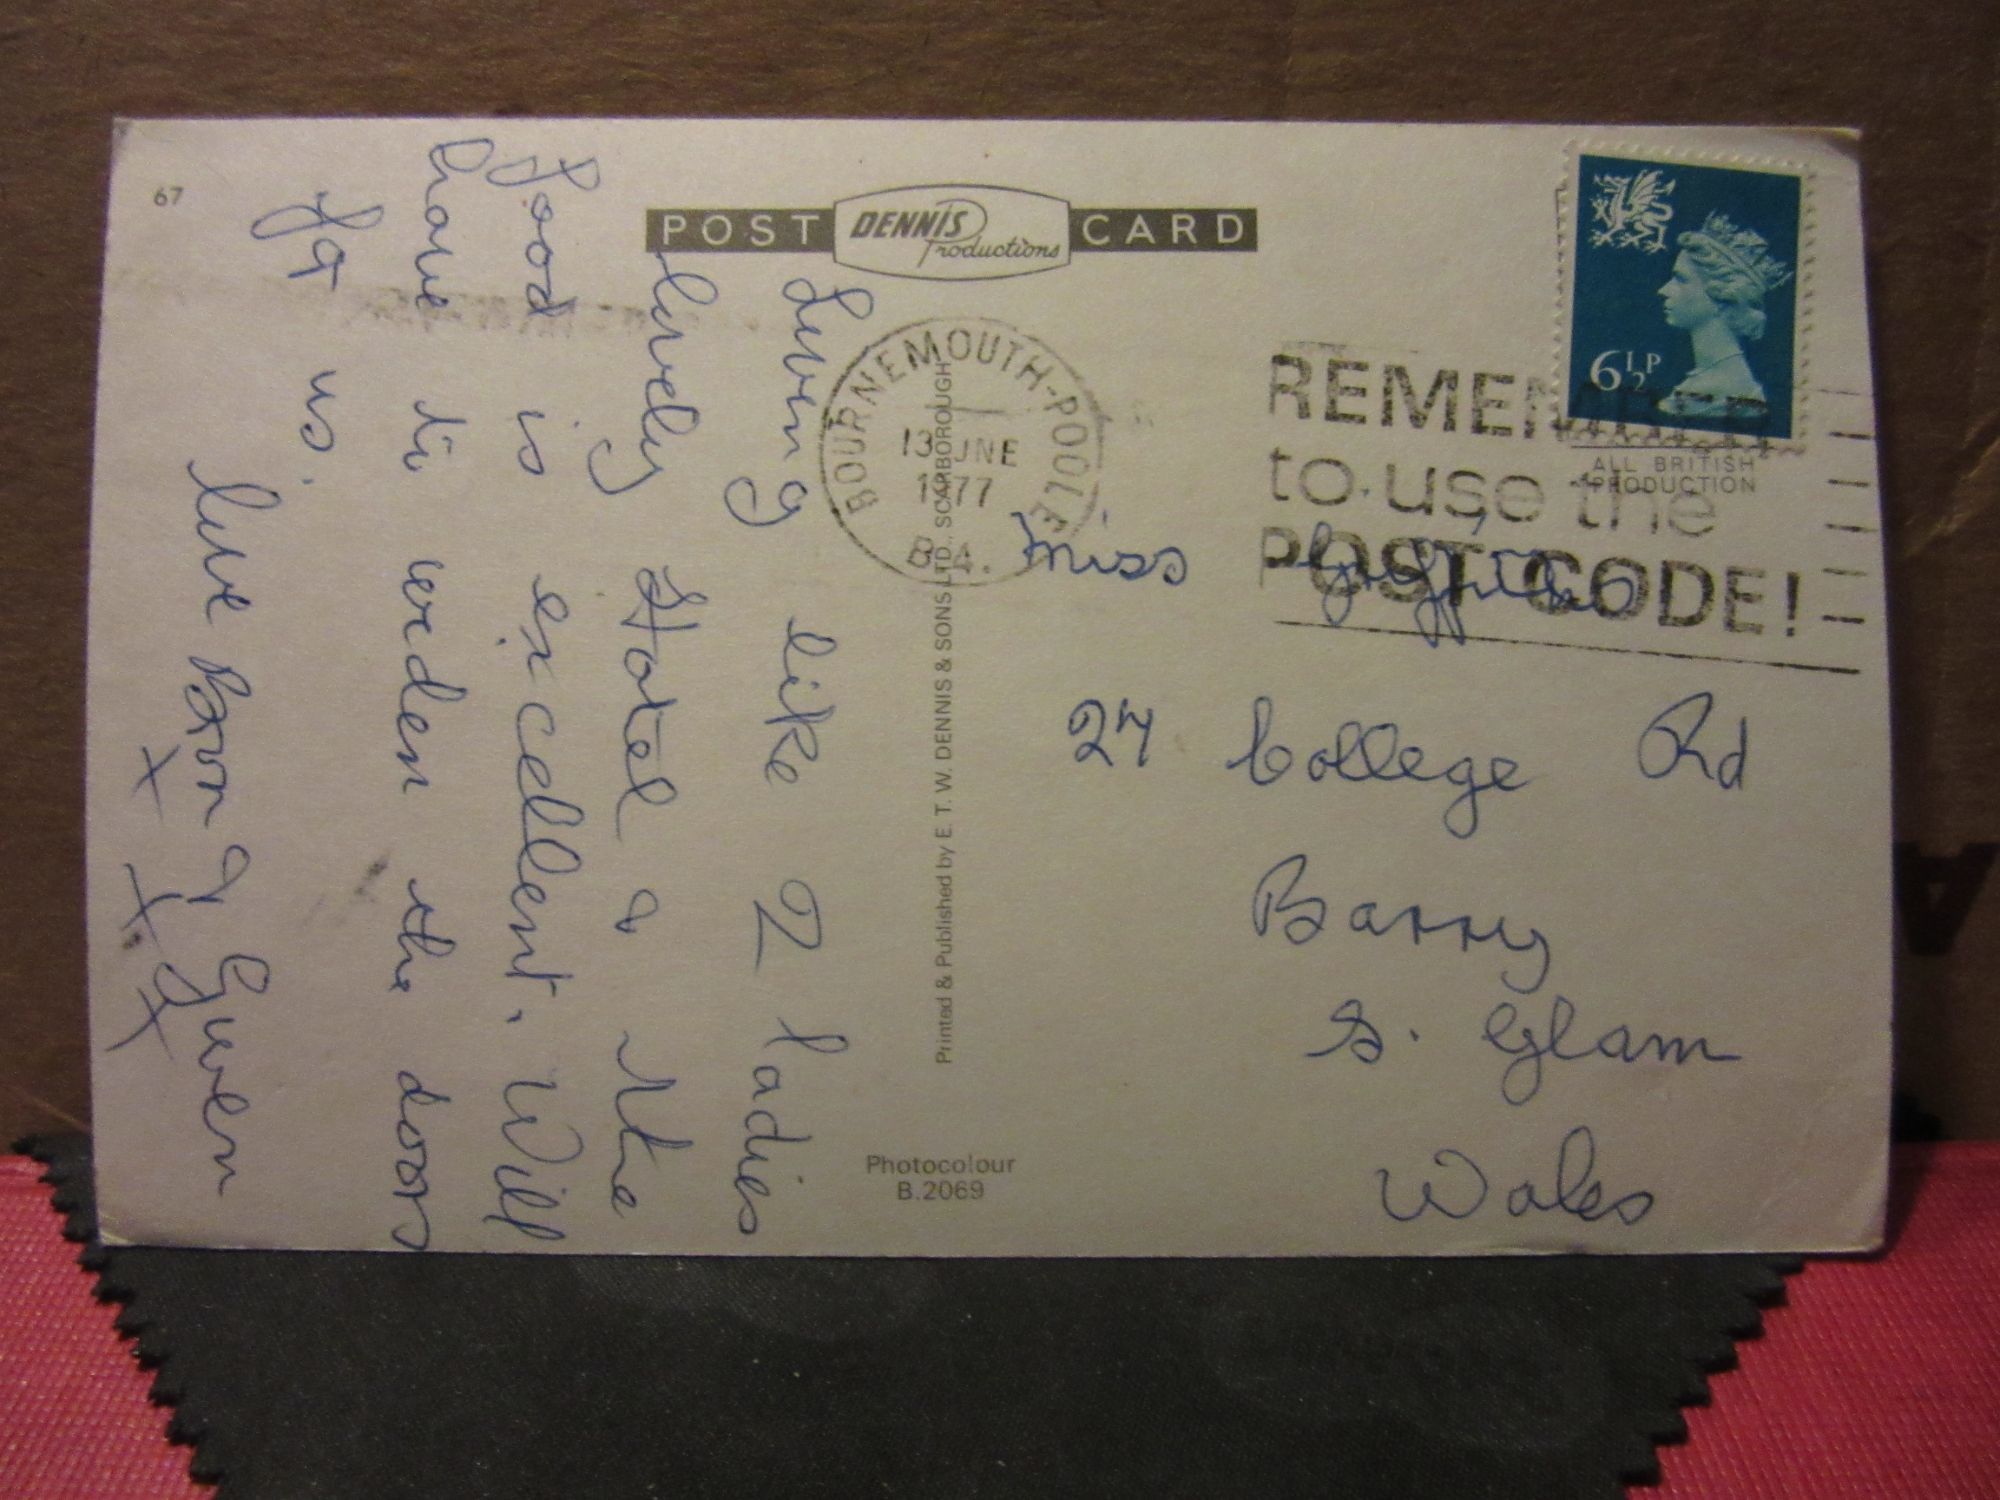 67
POST DENNIS Productions CARD
Living like 2 ladies
lovely Hotel & the
food is excellent. Will
have to widen the doors
for us.
love Bron & Gwen
X X X
BOURNEMOUTH-POOLE
13 JNE
1977
B.A.
REMEMBER
to use the
POST CODE!
6½P
ALL BRITISH
PRODUCTION
Miss Griffiths
27 College Rd
Barry
S. Glam
Wales
Printed & Published by E. T. W. DENNIS & SONS LTD., SCARBOROUGH
Photocolour
B.2069